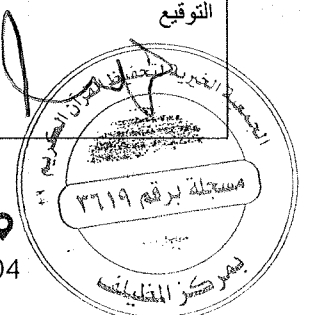 التوقيع
الجمعية الخيرية لتحفيظ القرآن الكريم
مسجلة برقم ٣٦١٩
بمركز
04